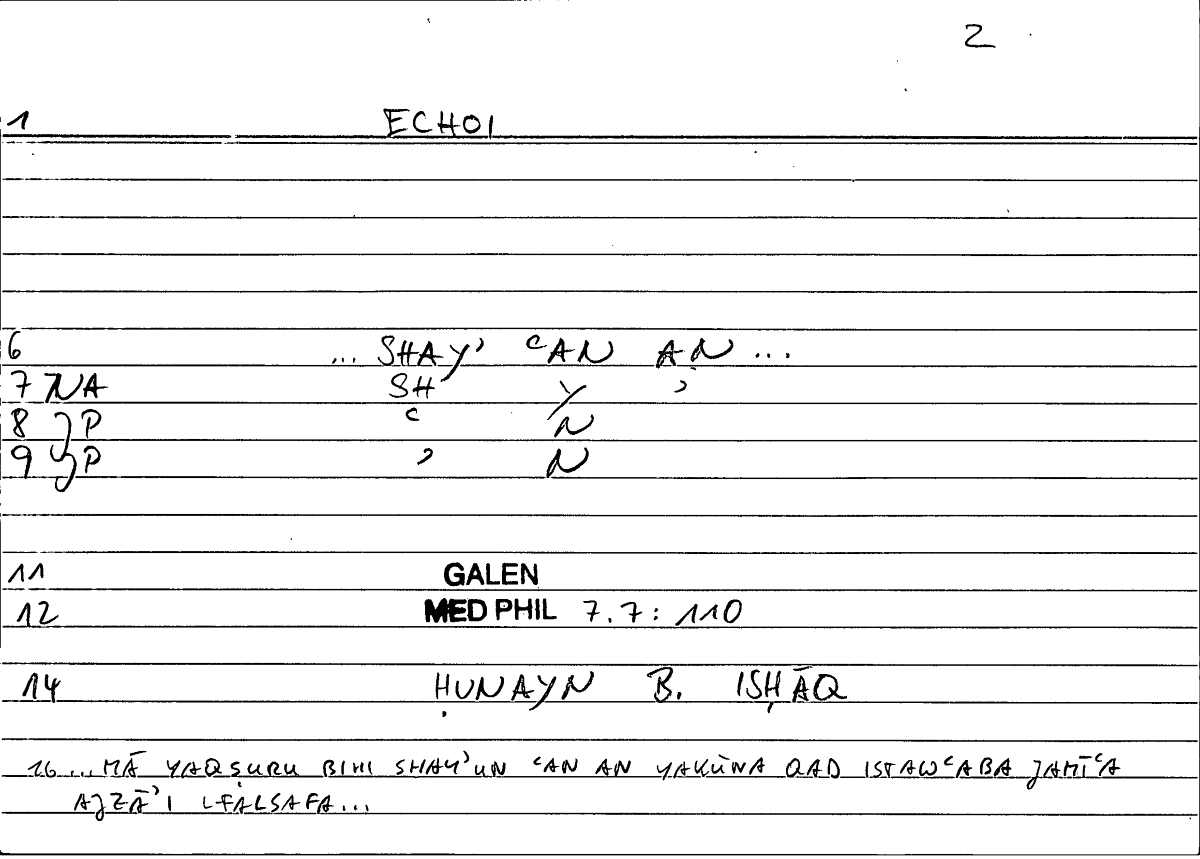 2
1 ECHOI
6 ... SHAY' ʿAN AN ...
7 NA SH Y '
8 JP ʿ N
9 JP ' N
11 GALEN
12 MED PHIL 7.7: 110
14 ḤUNAYN B. ISḤĀQ
16 ... MĀ YAQṢURU BIHI SHAY'UN ʿAN AN YAKŪNA QAD ISTAWʿABA JAMĪʿA
AJZĀ'I LFALSAFA...